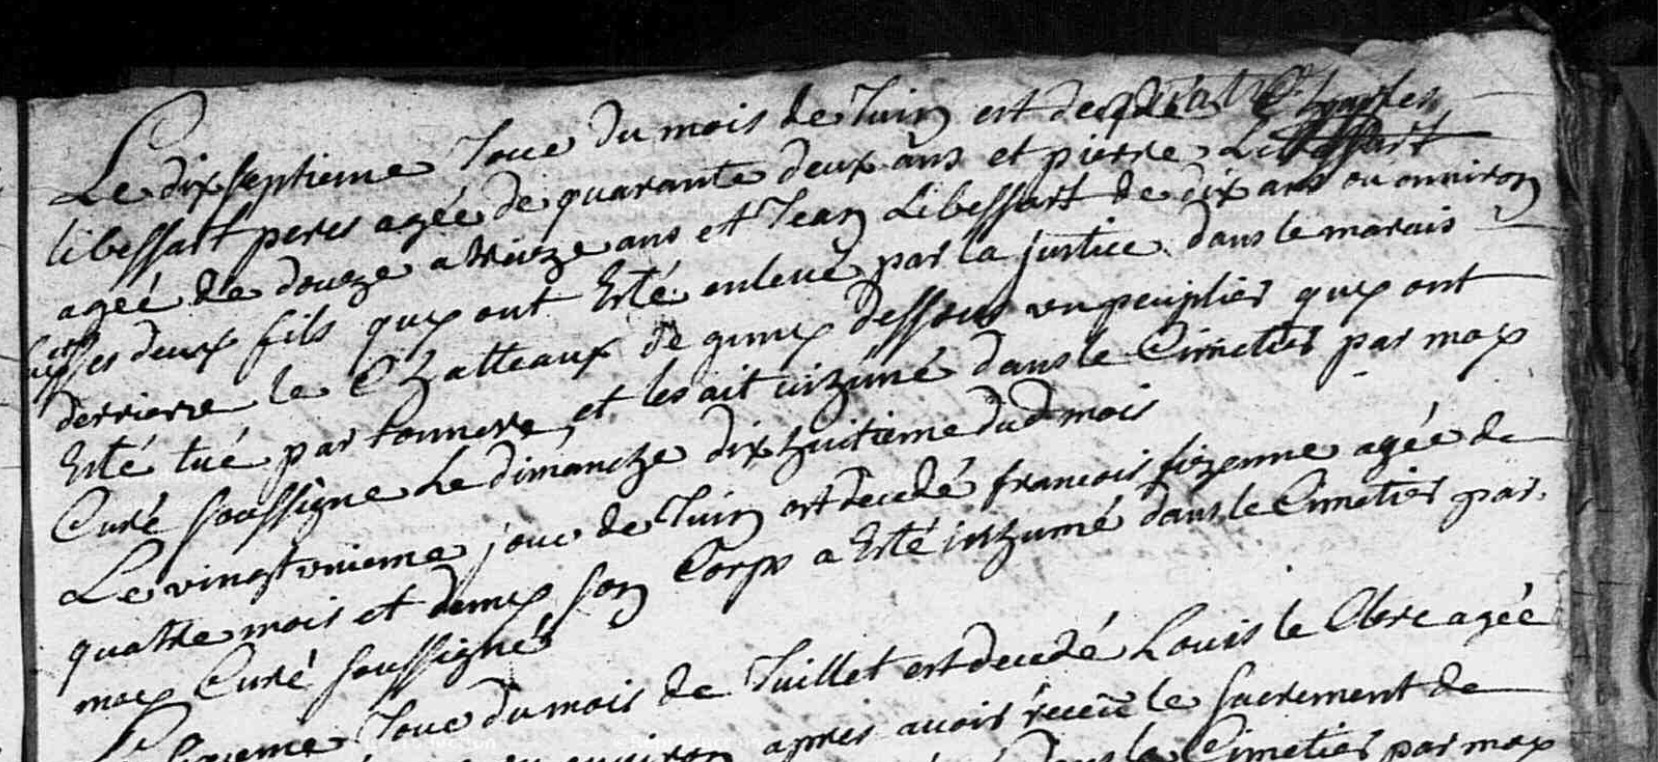 Le dixseptieme Jour du mois de Juin est decede Charles
libessart peres agée de quarante deux ans et pierre Libessart
ageé de douze a treize ans et Jean Libessart de dix ans ou anniron
ses deux fils quy ont Esté enleué par la justice dans le marais
derriere le Chatteaux de gimy dessous un peuplier quy ont
Esté tué par tonnere et les ait inhumé dans le Cimetier par moy
Curé soussigne Le dimanche dixhuitieme dud mois
Le vingt unieme jour de Juin est decedé francois fizenne agée de
quatre mois et demy son Corps a Esté inhumé dans le Cimetier par
moy Curé soussigné
Jour du mois de Juillet est decedé Louis le Clerc agée
ou anniron apres auoir réceu le sacrement de
dans le Cimetier par moy